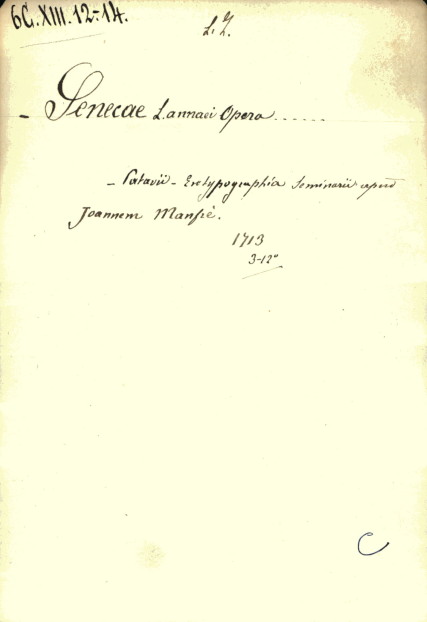 6C.XIII.12-14.
L.Z.
- Senecae L. annaei Opera ......
- Patavii - Ex typographia Seminarii apud
Joannem Manfrè.
1713
3-12°
C